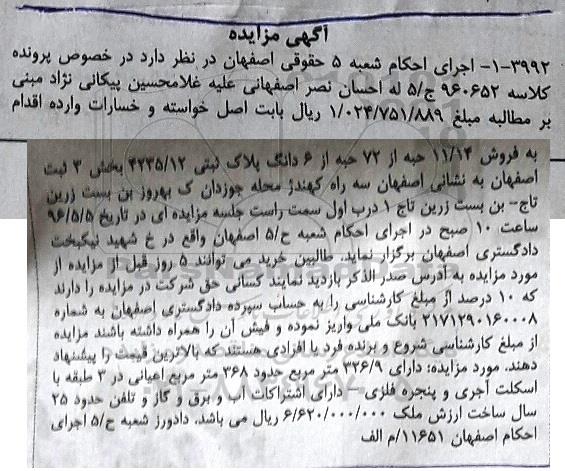 آگهی مزایده
۱-۳۹۹۲- اجرای احکام شعبه ۵ حقوقی اصفهان در نظر دارد در خصوص پرونده
کلاسه ۹۶۰۶۵۲ ج/۵ له احسان نصر اصفهانی علیه غلامحسین پیکانی نژاد مبنی
بر مطالبه مبلغ ۱/۰۲۴/۷۵۱/۸۸۹ ریال بابت اصل خواسته و خسارات وارده اقدام
به فروش ۱۱/۱۴ حبه از ۷۲ حبه از ۶ دانگ پلاک ثبتی ۴۲۳۵/۱۲ بخش ۳ ثبت
اصفهان به نشانی اصفهان سه راه کهندژ محله جوزدان ک بهروز بن بست زرین
تاج- بن بست زرین تاج ۱ درب اول سمت راست جلسه مزایده ای در تاریخ ۹۶/۵/۵
ساعت ۱۰ صبح در اجرای احکام شعبه ح/۵ اصفهان واقع در خ شهید نیکبخت
دادگستری اصفهان برگزار نماید. طالبین خرید می توانند ۵ روز قبل از مزایده از
مورد مزایده به آدرس صدر الذکر بازدید نمایند کسانی حق شرکت در مزایده را دارند
که ۱۰ درصد از مبلغ کارشناسی را به حساب سپرده دادگستری اصفهان به شماره
۲۱۷۱۲۹۰۱۶۰۰۰۸ بانک ملی واریز نموده و فیش آن را همراه داشته باشند مزایده
از مبلغ کارشناسی شروع و برنده فرد یا افرادی هستند که بالاترین قیمت را پیشنهاد
دهند. مورد مزایده: دارای ۳۲۶/۹ متر مربع حدود ۲۶۸ متر مربع اعیانی در ۳ طبقه با
اسکلت آجری و پنجره فلزی - دارای اشتراکات آب و برق و گاز و تلفن حدود ۲۵
سال ساخت ارزش ملک ۶/۶۲۰/۰۰۰/۰۰۰ ریال می باشد. دادورز شعبه ح/۵ اجرای
احکام اصفهان ۱۱۶۵۱/م الف